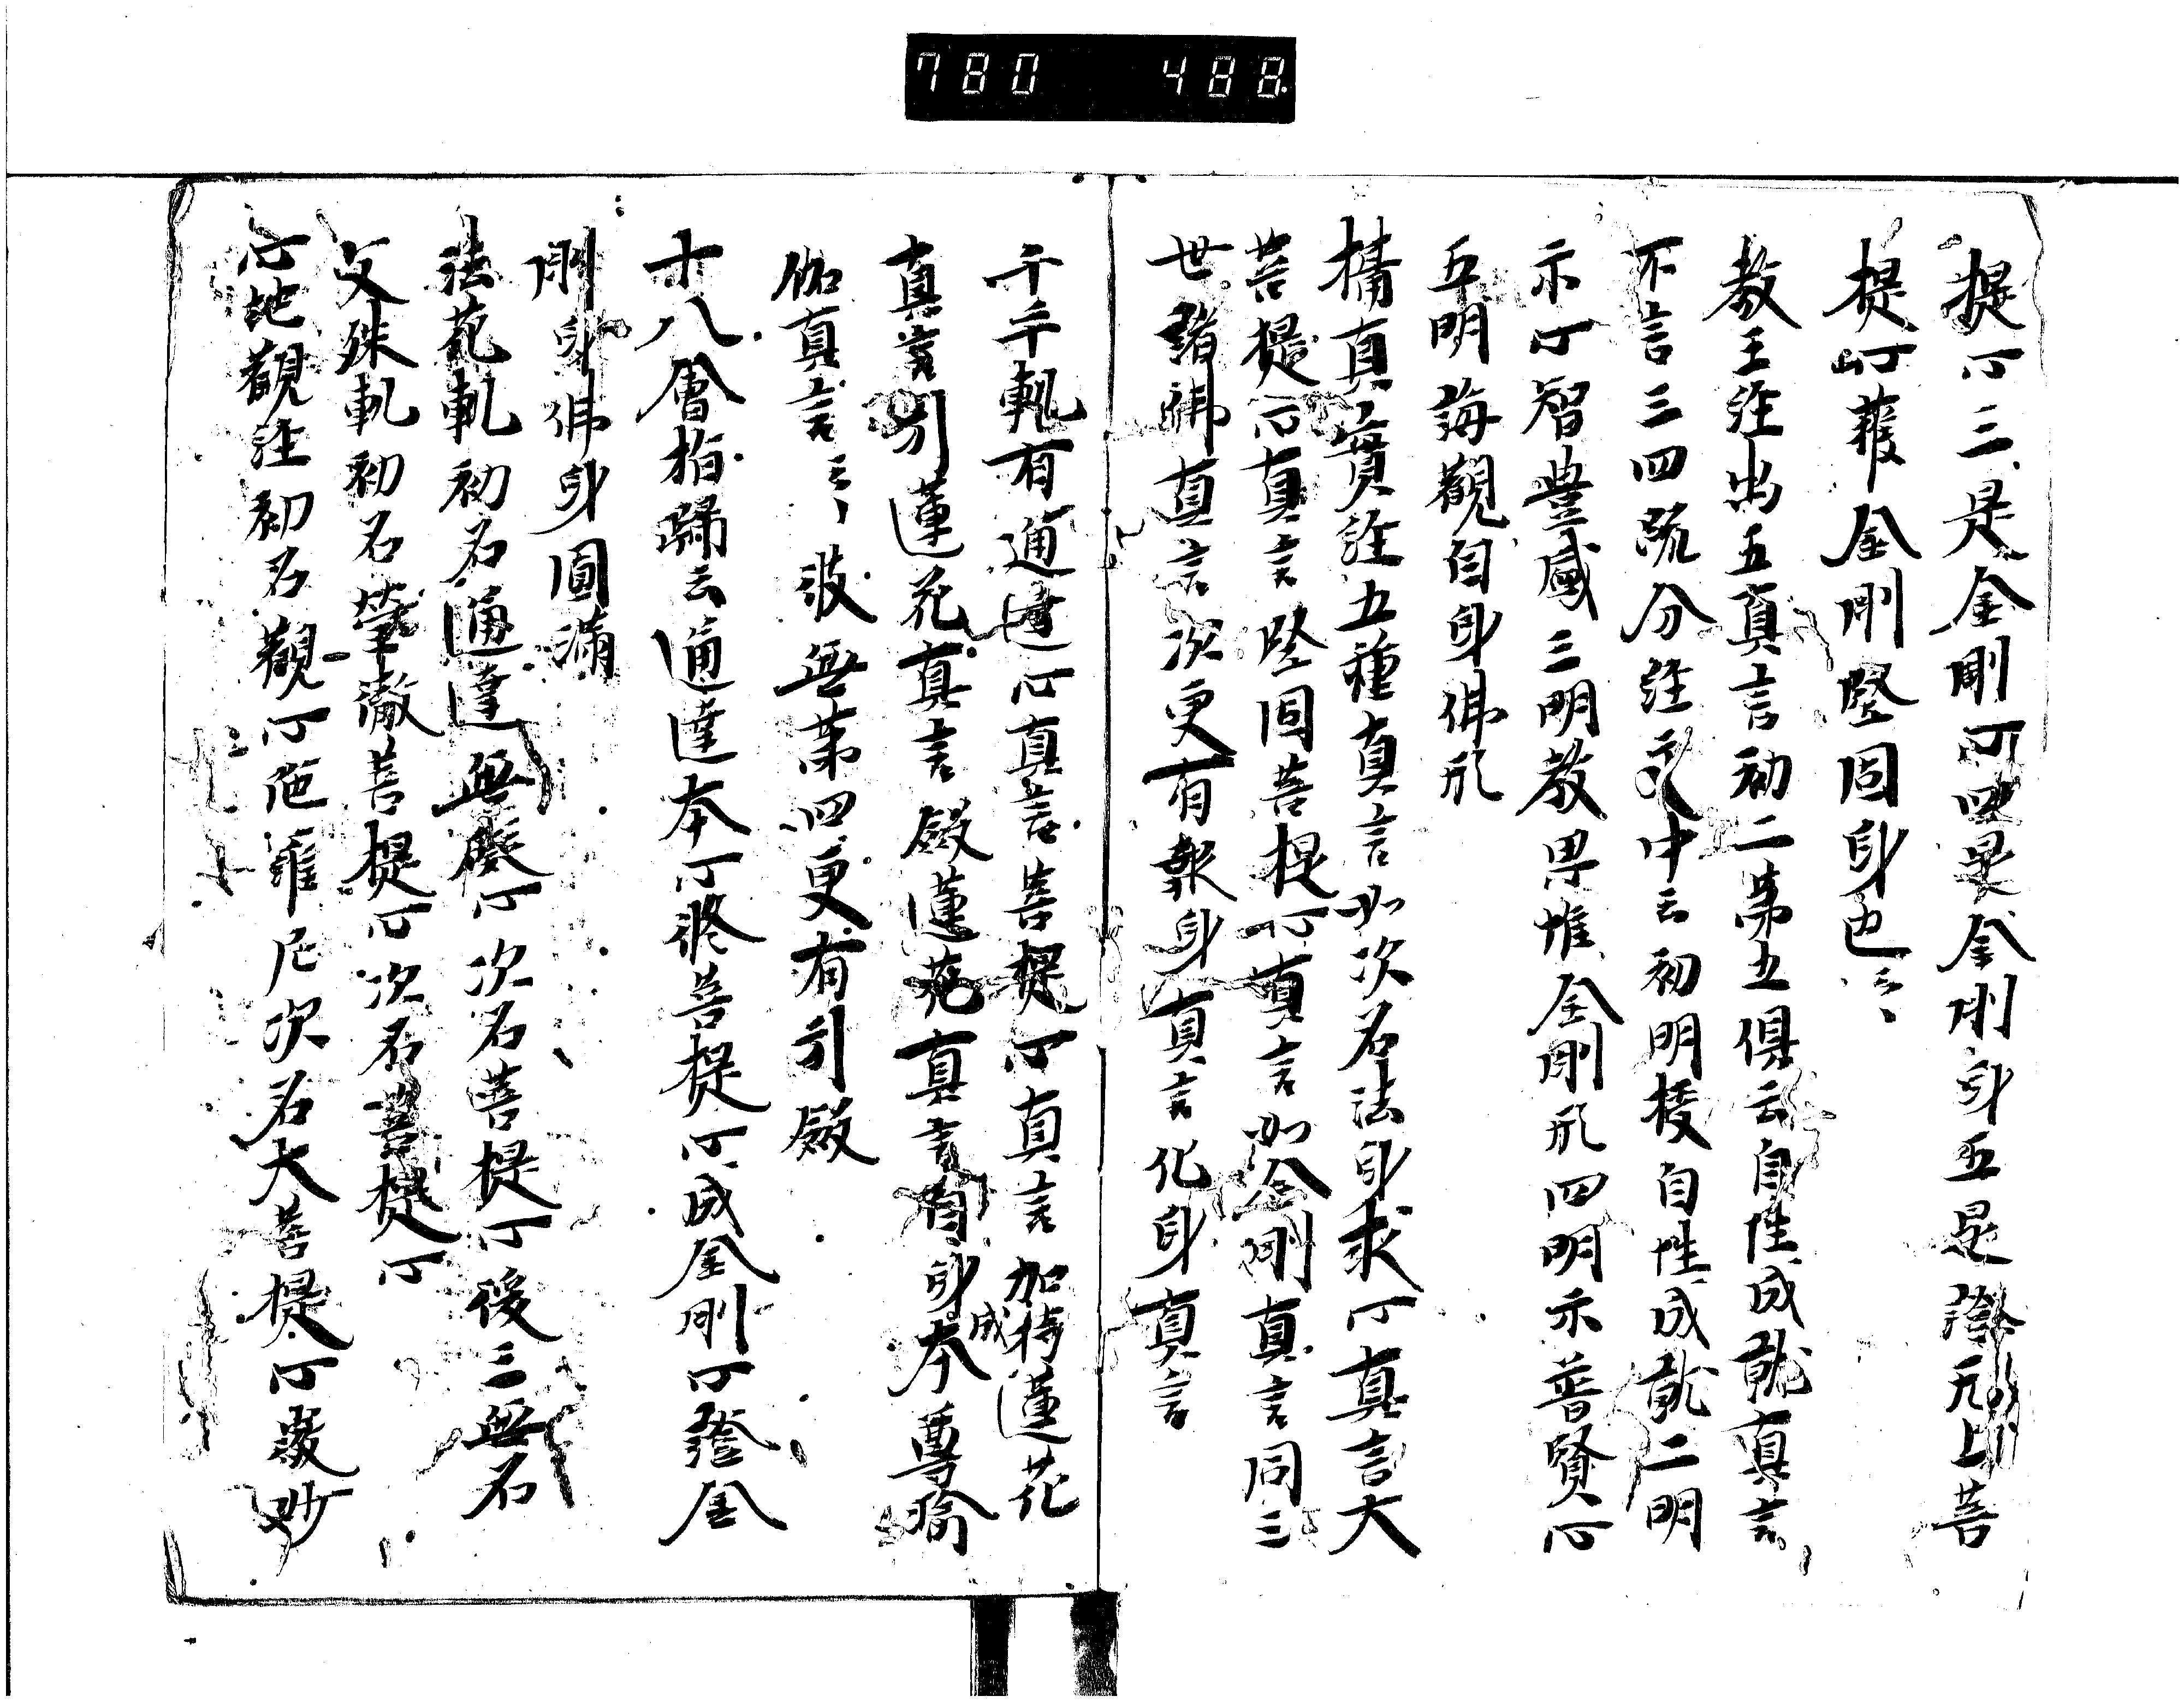 780 488
提心三是金剛心四是金剛身五是證无上菩
提心獲金剛堅固身也云々
教王経出五真言初二第五俱云自性成就真言
不言三四疏分経之中云初明授自性成就二明
示心智豊盛三明教果惟金剛形四明示普賢心
五明誨觀自身佛形
攝真實経五種真言如次名法身求心真言大
菩提心真言堅固菩提心真言如金剛真言同三
世諸佛真言次更有報身真言化身真言
千手軌有通達心真言菩提心真言加持蓮花
真言引蓮花真言斂蓮花真言自身成本尊瑜
伽真言云々彼無第四更有引斂
十八會指歸云通達本心修菩提心成金剛心證金
剛身佛身圓滿
法花軌初名通達無礙心次名菩提心後三無名
文殊軌初名瑩徹菩提心次名菩提心
心地觀経初名觀心陀羅尼次名大菩提心最妙